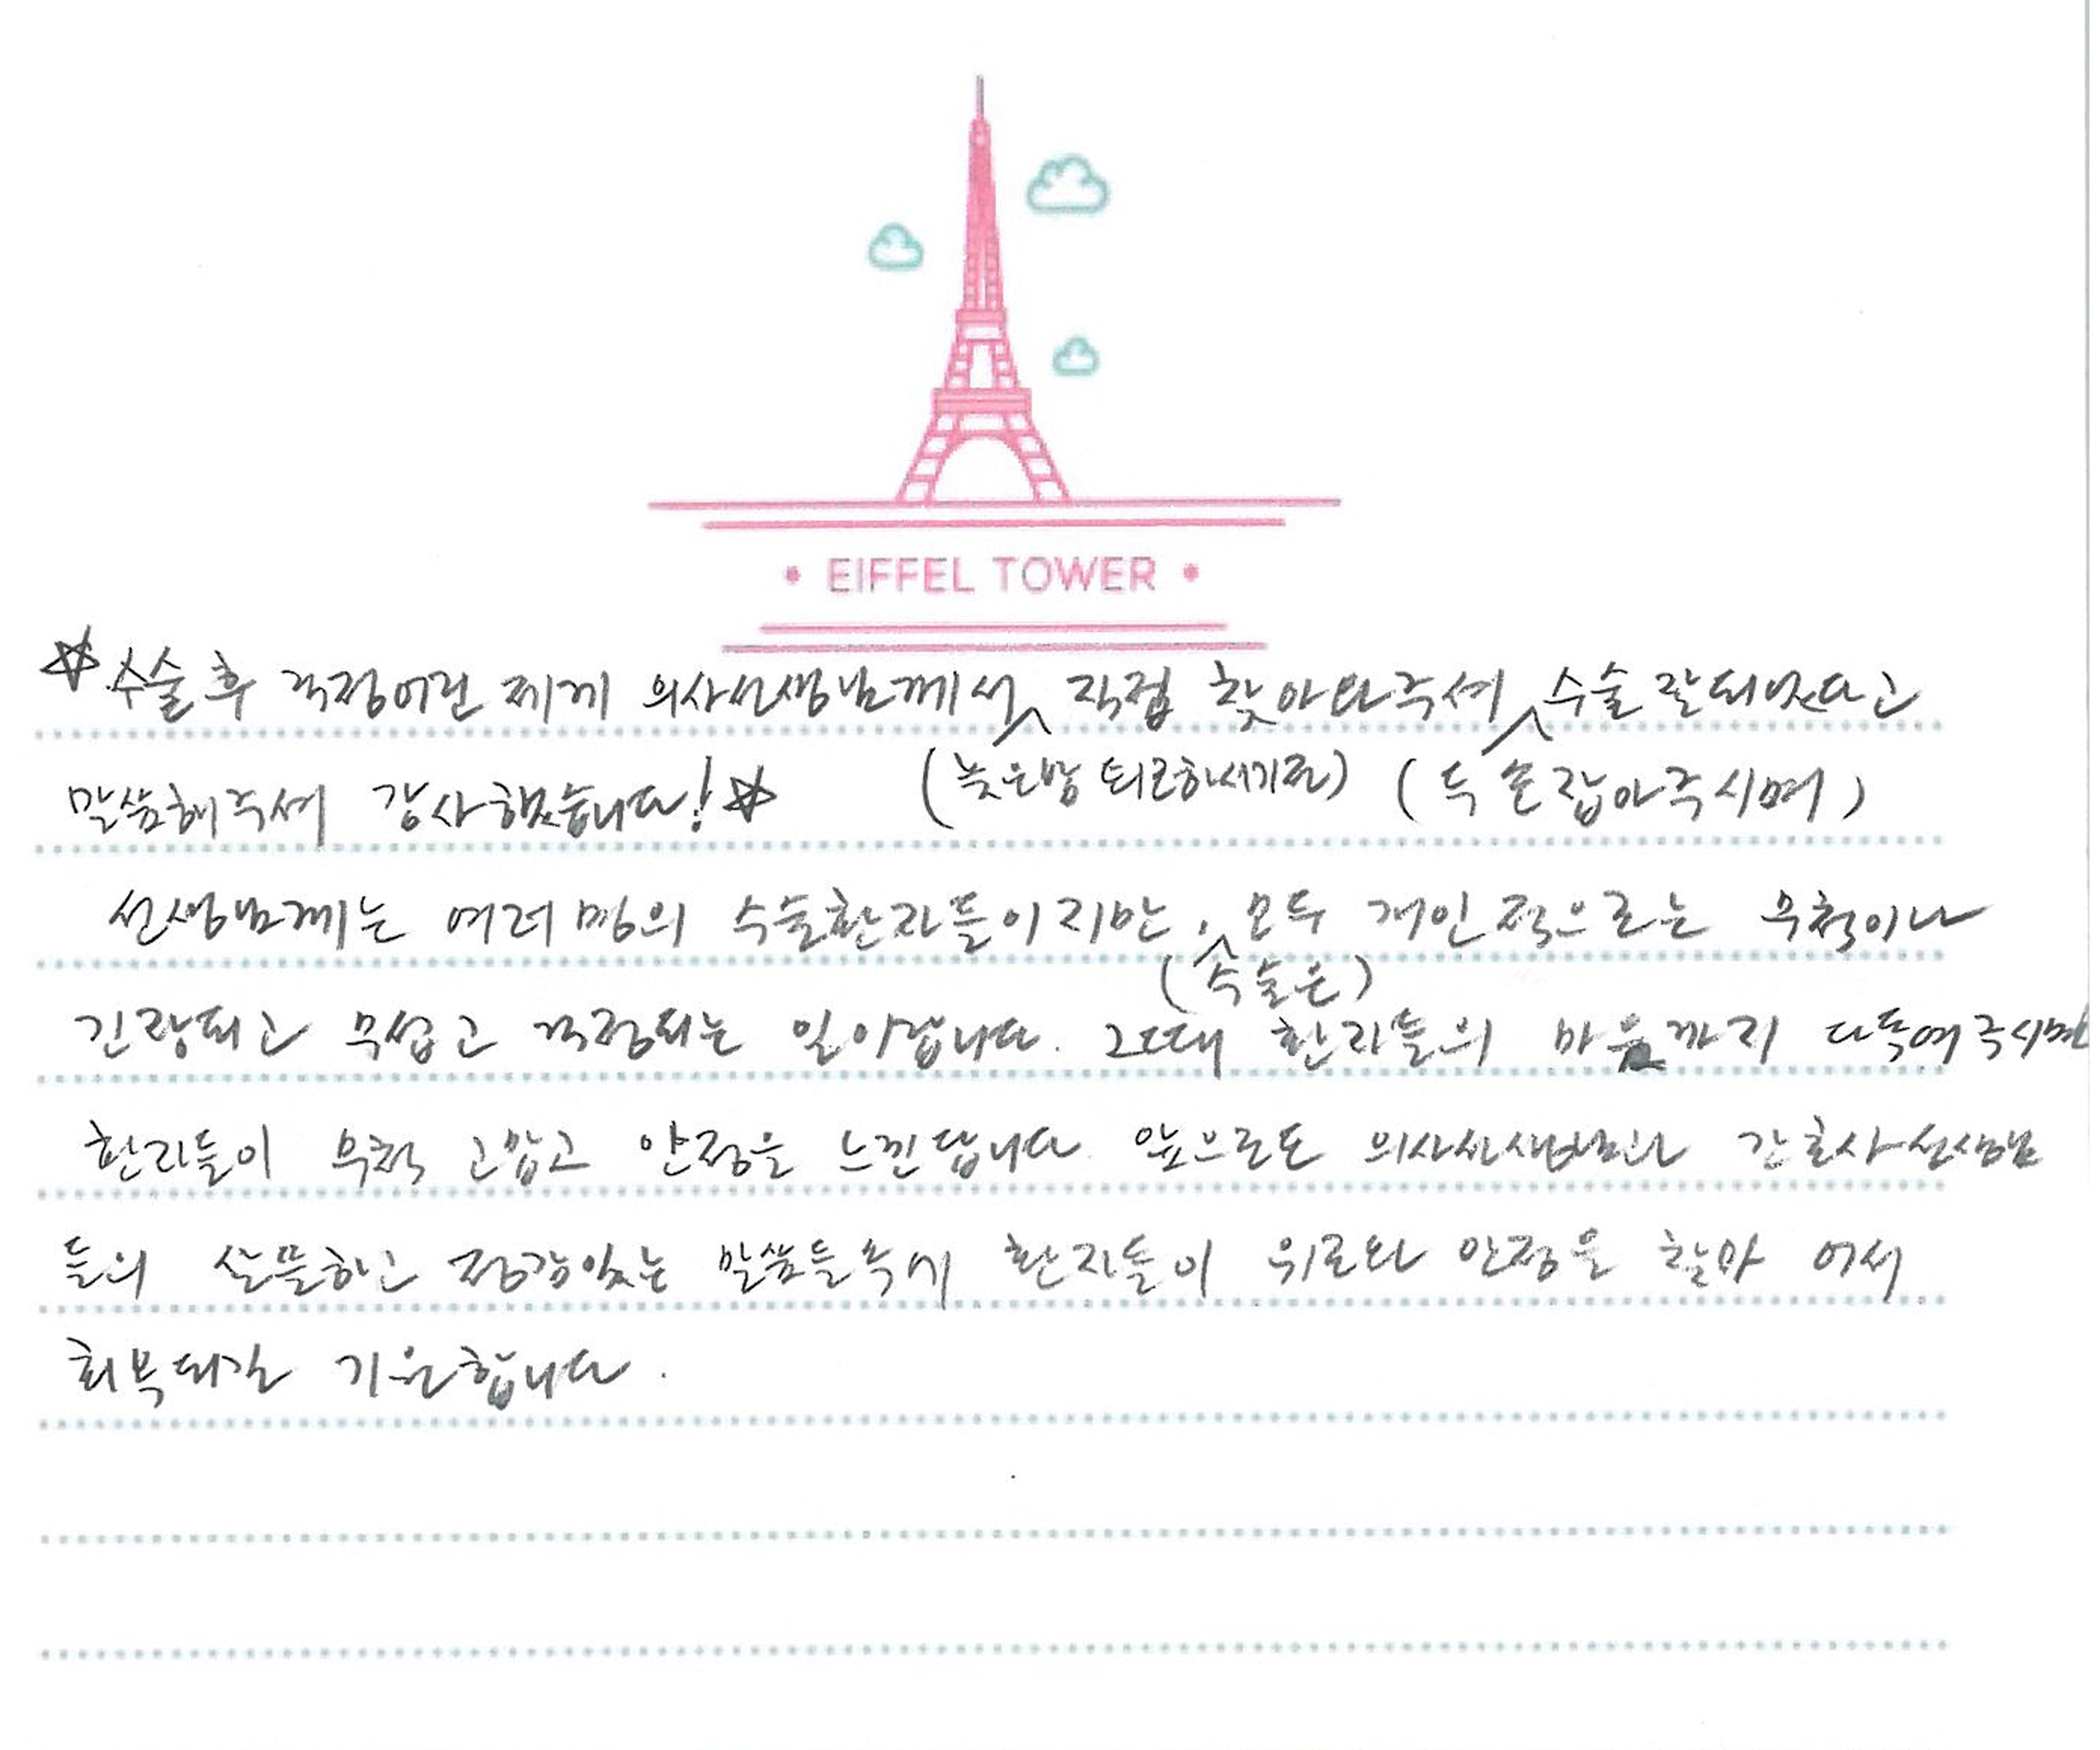 EIFFEL TOWER
☆수술 후 걱정어린 제게 의사선생님께서 직접 찾아와주셔 수술 잘되었다고
(늦은밤 퇴근하시기전) (두 손 잡아주시며)
말씀해주셔 감사했습니다!☆
선생님께는 여러명의 수술환자들이지만, 모두 개인적으로는 무척이나
(수술은)
긴장되고 무섭고 걱정되는 일이랍니다. 그때 환자들의 마음까지 다독여주시면
환자들이 무척 고맙고 안정을 느낀답니다. 앞으로도 의사선생님과 간호사선생님
들의 살뜰하고 정감있는 말씀들속에 환자들이 위로와 안정을 찾아 어서
회복되길 기원합니다.